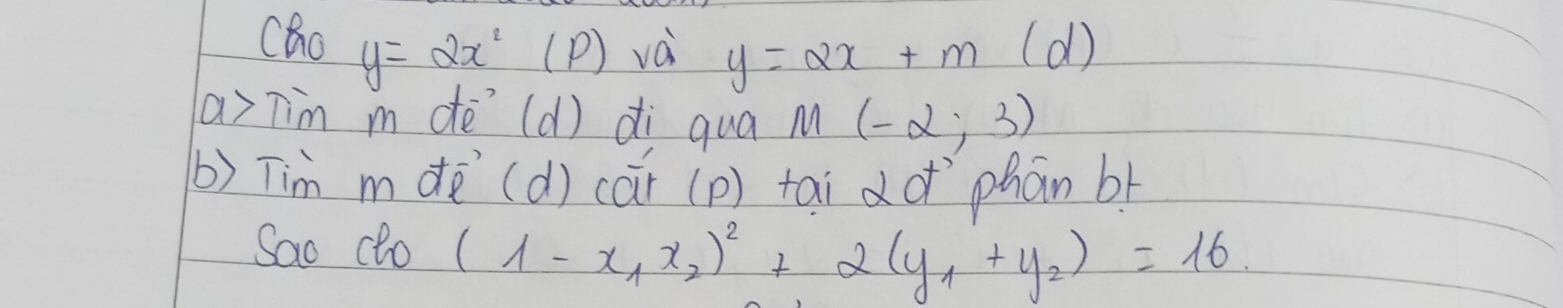 Cho y = 2x² (P) và y = 2x + m (d)
a> Tìm m để (d) đi qua M (-2; 3)
b) Tìm m để (d) cắt (P) tại 2 đ' phân bt
Sao cho (1 - x₁x₂)² + 2(y₁ + y₂) = 16.